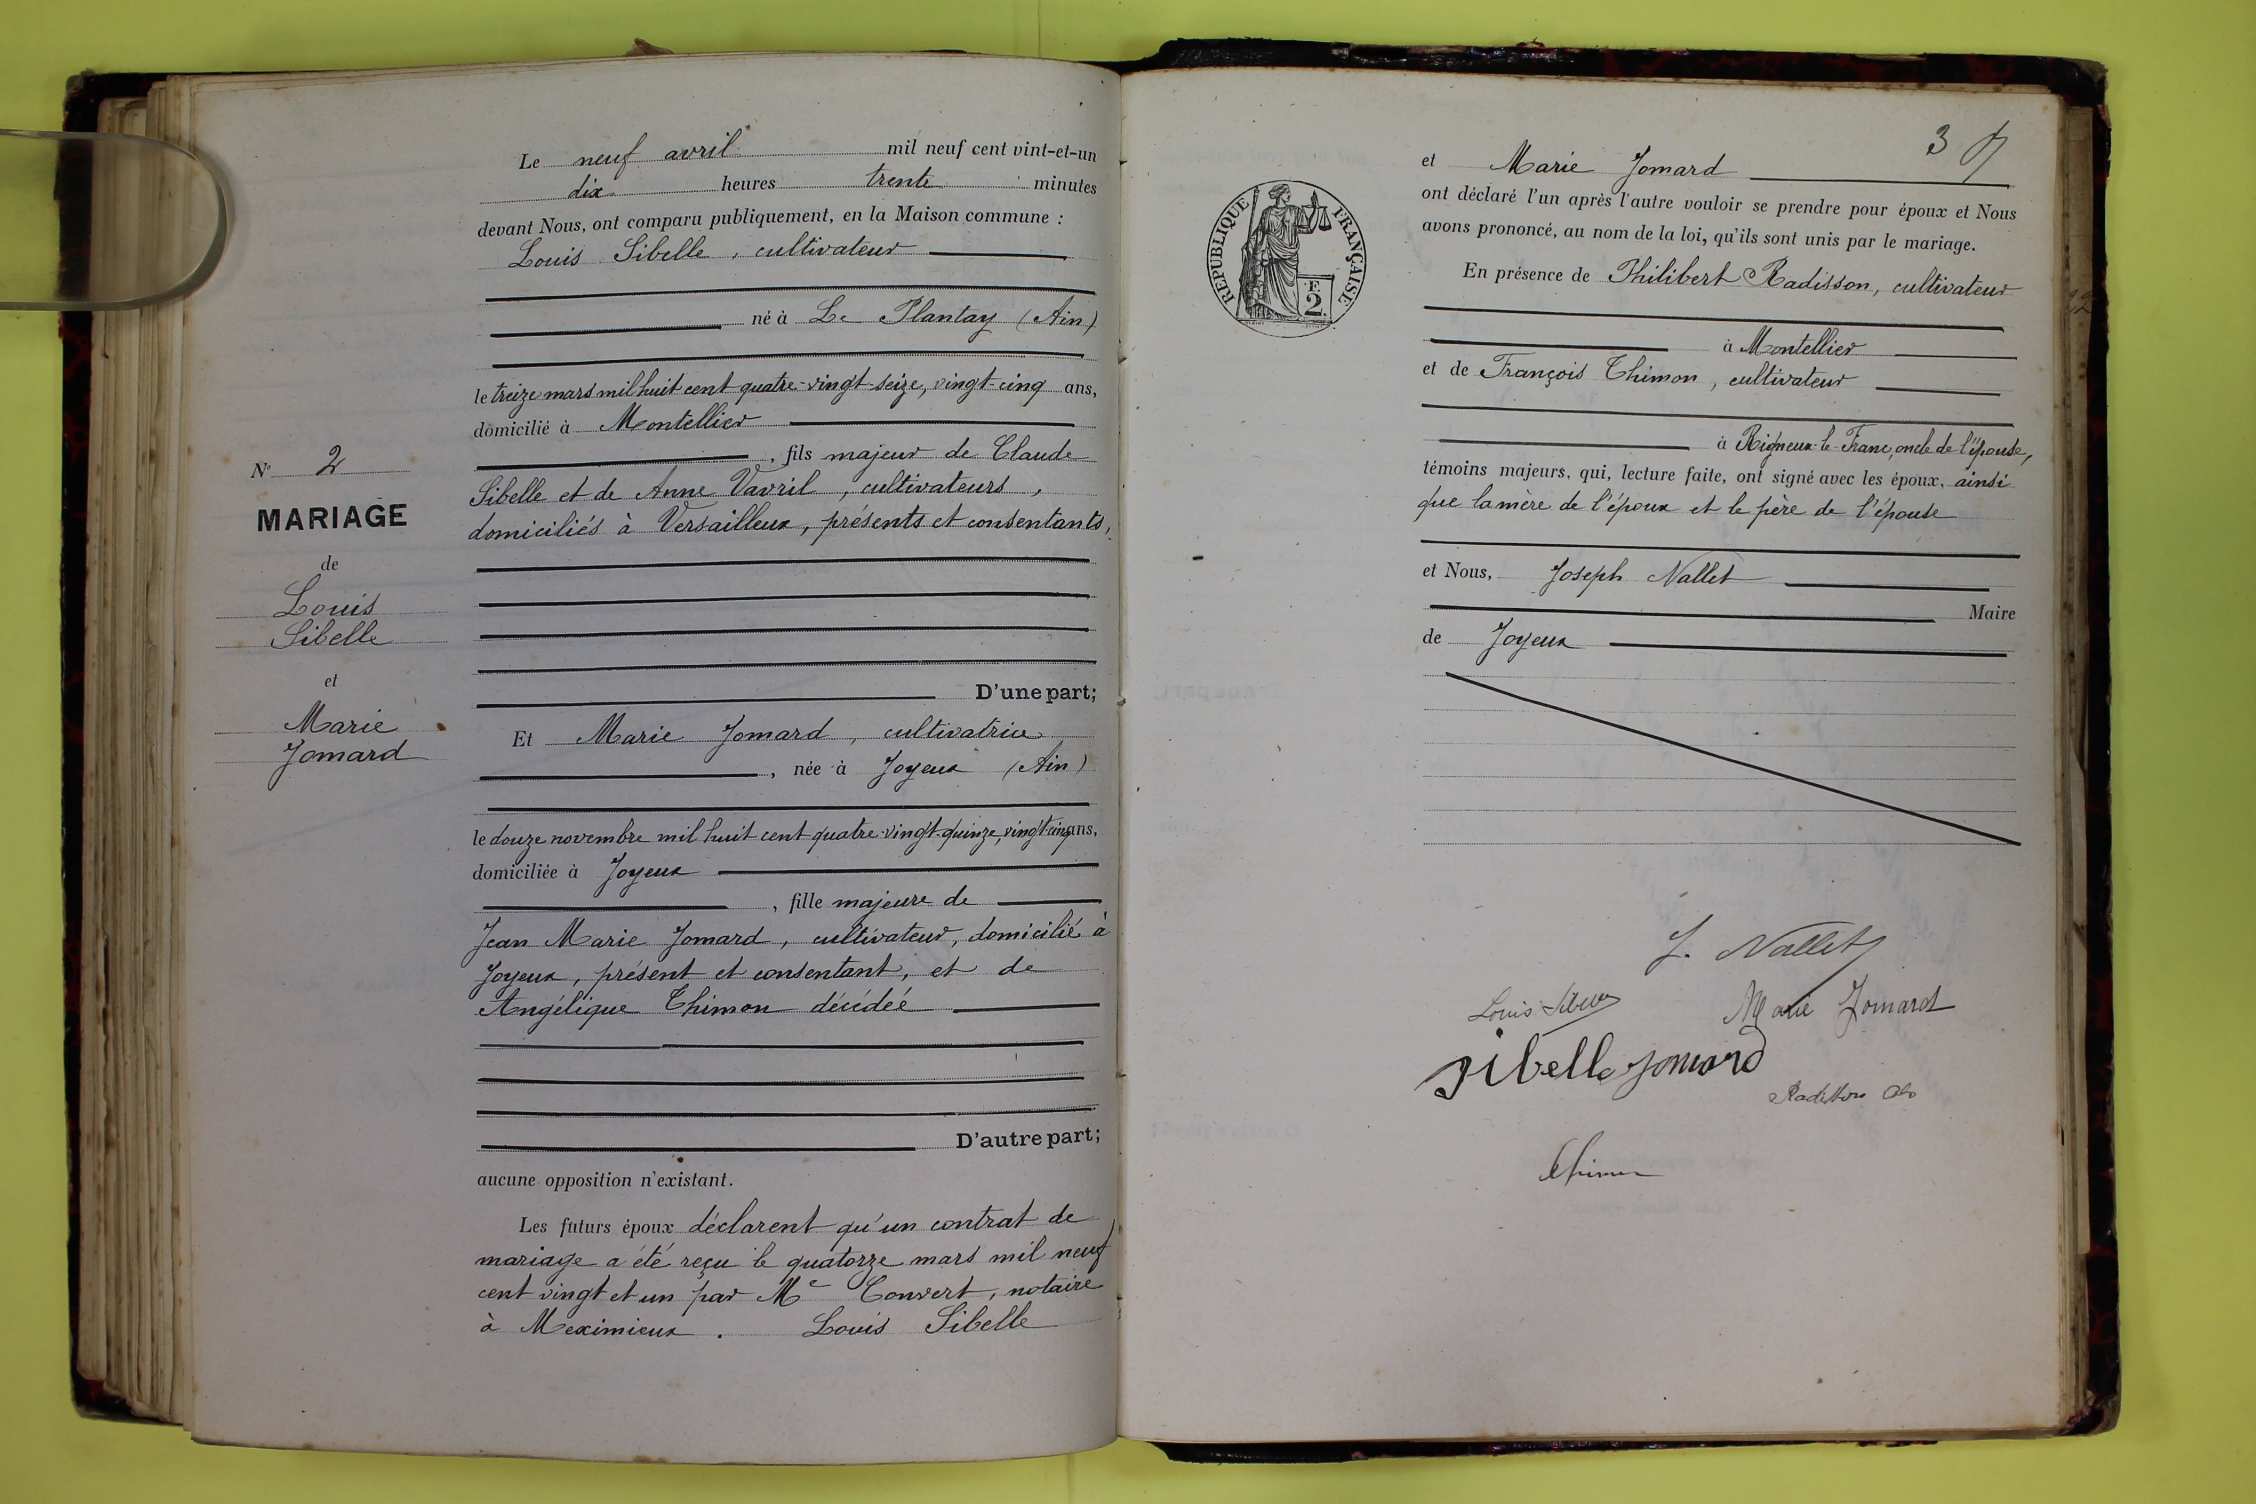 Le neuf avril mil neuf cent vint-et-un
dix heures trente minutes
devant Nous, ont comparu publiquement, en la Maison commune :
Louis Sibelle, cultivateur
né à Le Plantay (Ain)
le treize mars mil huit cent quatre-vingt-seize, vingt-cinq ans,
domicilié à Montellier
, fils majeur de Claude
Sibelle et de Anne Vavril, cultivateurs,
domiciliés à Versailleux, présents et consentants,
D'une part;
Et Marie Jomard, cultivatrice
, née à Joyeux (Ain)
le douze novembre mil huit cent quatre-vingt-quinze, vingt-cinq ans,
domiciliée à Joyeux
, fille majeure de
Jean Marie Jomard, cultivateur, domicilié à
Joyeux, présent et consentant, et de
Angélique Thimon décédeé
D'autre part;
aucune opposition n'existant.
Les futurs époux déclarent qu'un contrat de
mariage a été reçu le quatorze mars mil neuf
cent vingt et un par Me Convert, notaire
à Meximieux. Louis Sibelle
N° 2
MARIAGE
de
Louis
Sibelle
et
Marie
Jomard
3
et Marie Jomard
ont déclaré l'un après l'autre vouloir se prendre pour époux et Nous
avons prononcé, au nom de la loi, qu'ils sont unis par le mariage.
En présence de Philibert Radisson, cultivateur
à Montellier
et de François Thimon, cultivateur
à Rigneux-le-Franc, oncle de l'épouse,
témoins majeurs, qui, lecture faite, ont signé avec les époux, ainsi
que la mère de l'époux et le père de l'épouse
et Nous, Joseph Nallet
Maire
de Joyeux
RÉPUBLIQUE FRANÇAISE
F.
2.
J. Nallet
Louis Sibelle
Marie Jomard
Sibelle Jomard
Radisson
Thimon